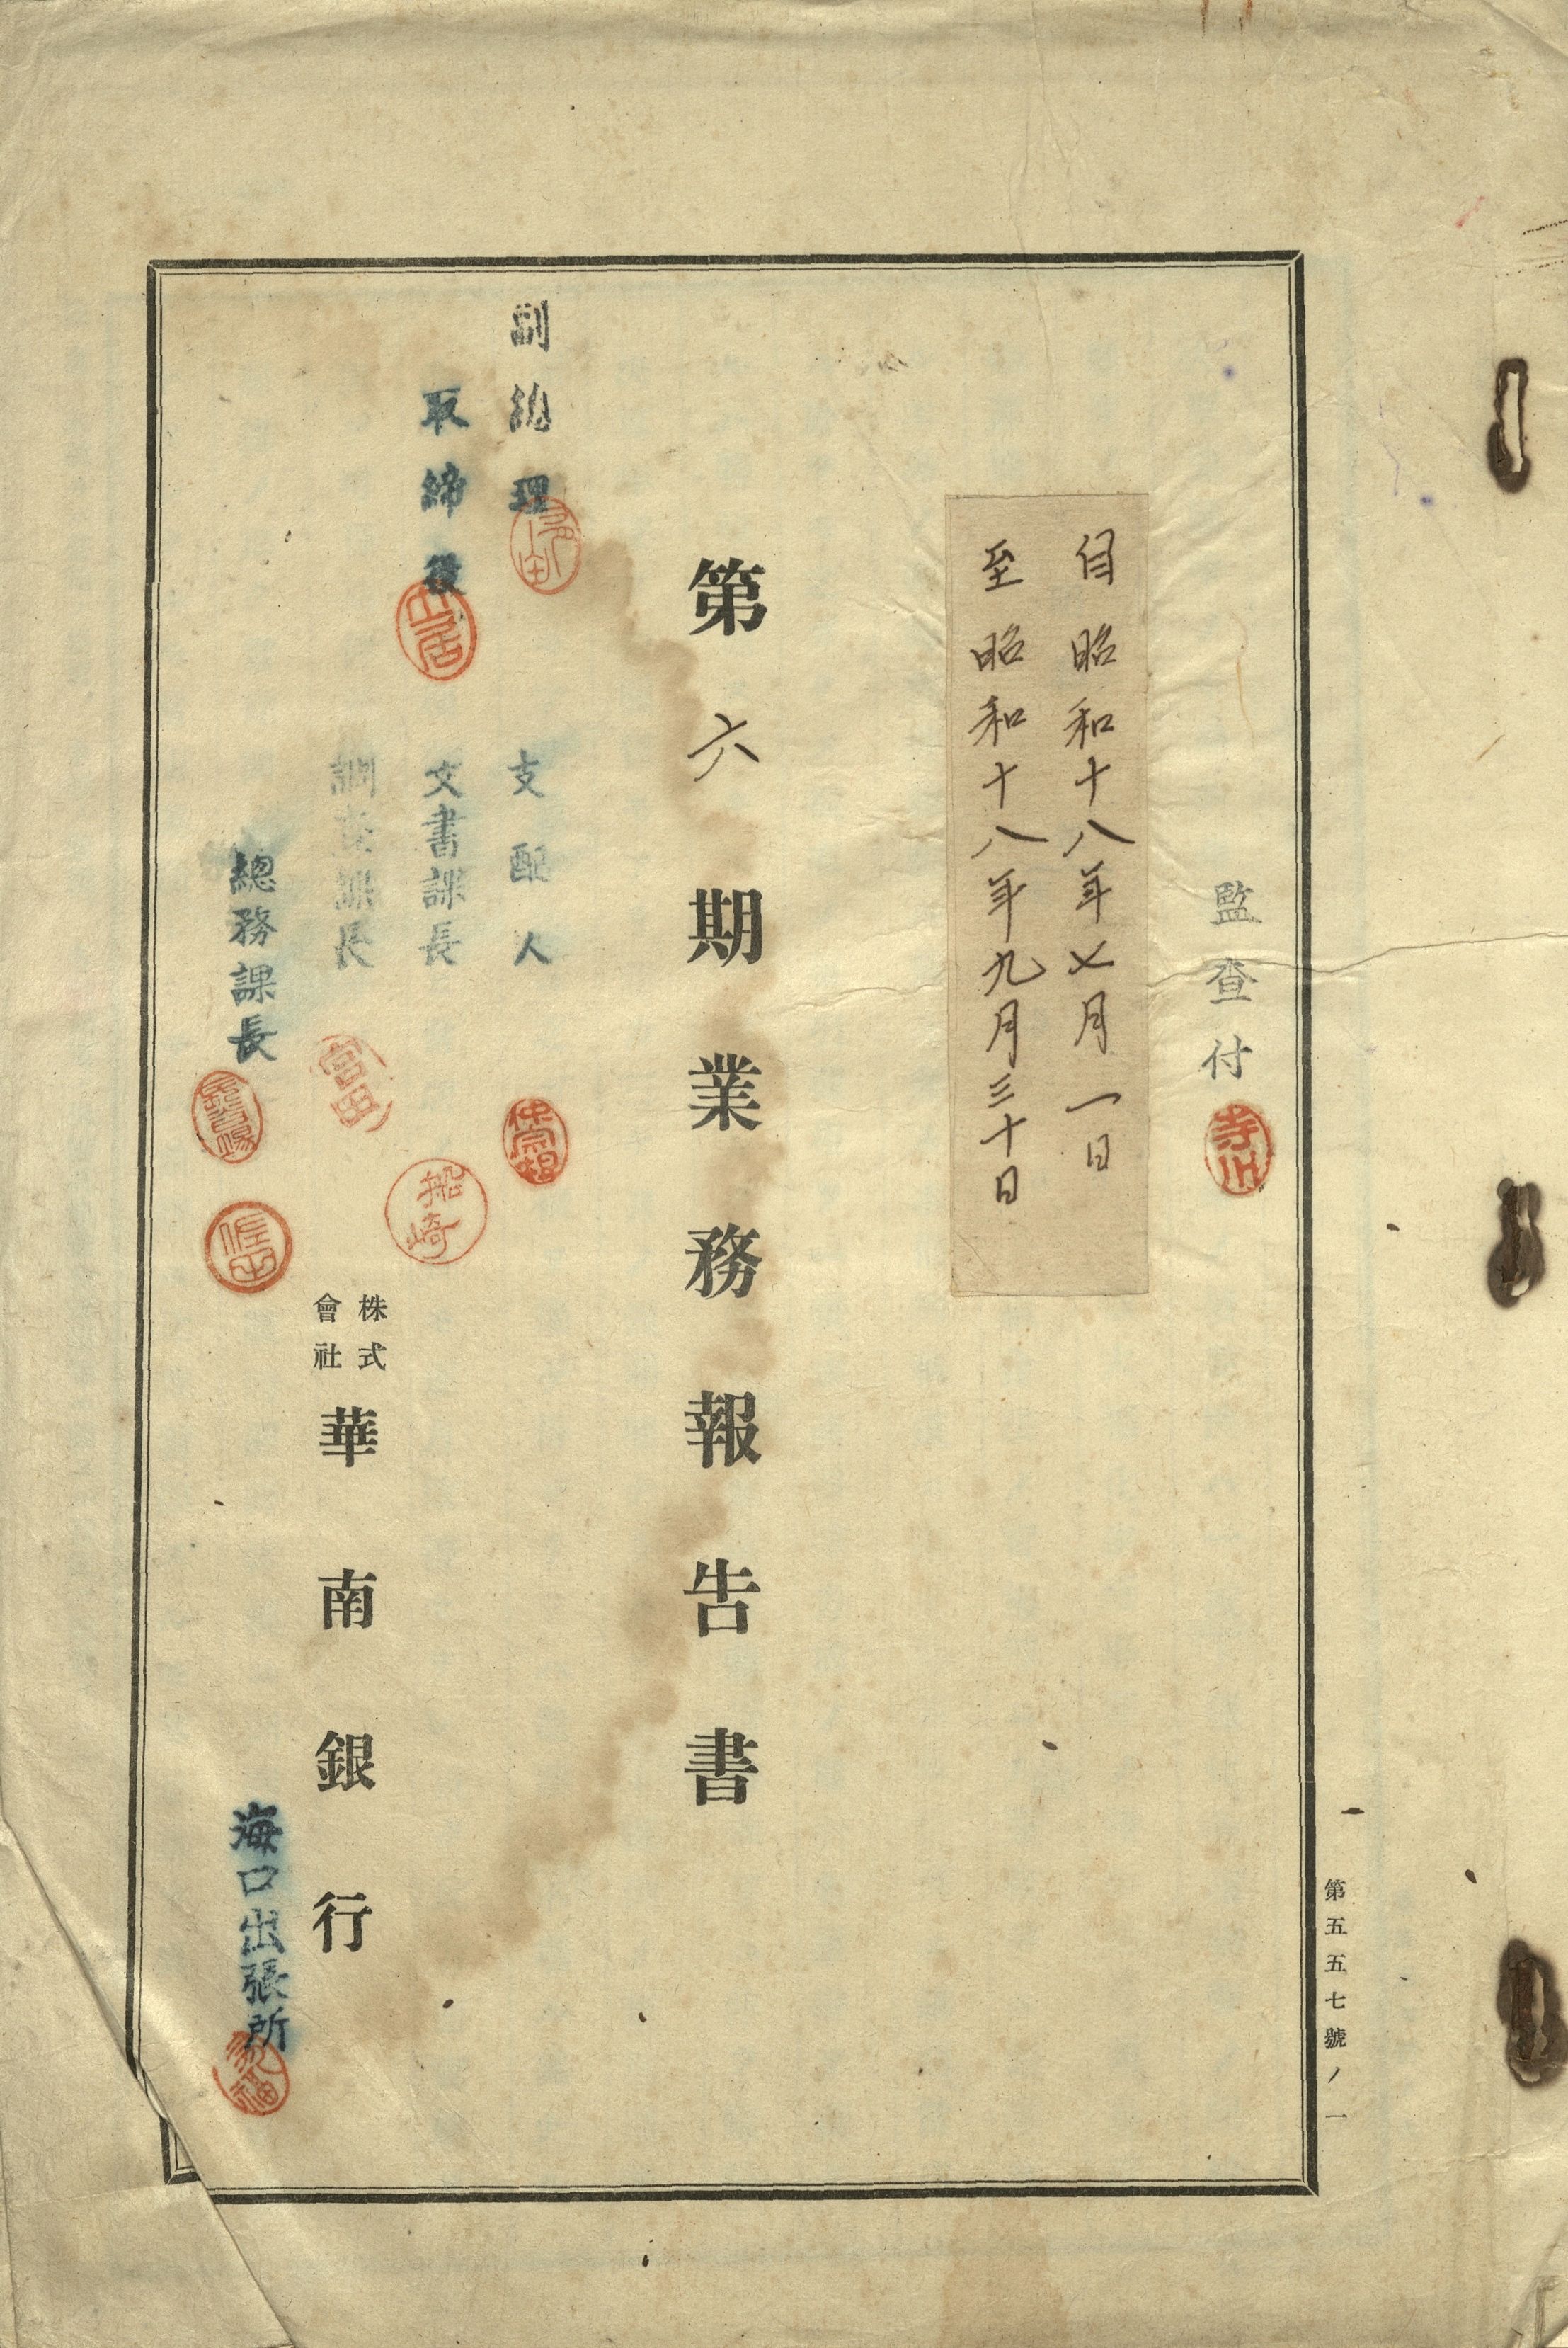 第五五七號ノ一
監査付
寺川
自昭和十八年七月一日
至昭和十八年九月三十日
第六期業務報告書
副總理
支配人
取締役
山居
文書課長
船崎
調査課長
富田
總務課長
株式會社華南銀行
海口出張所